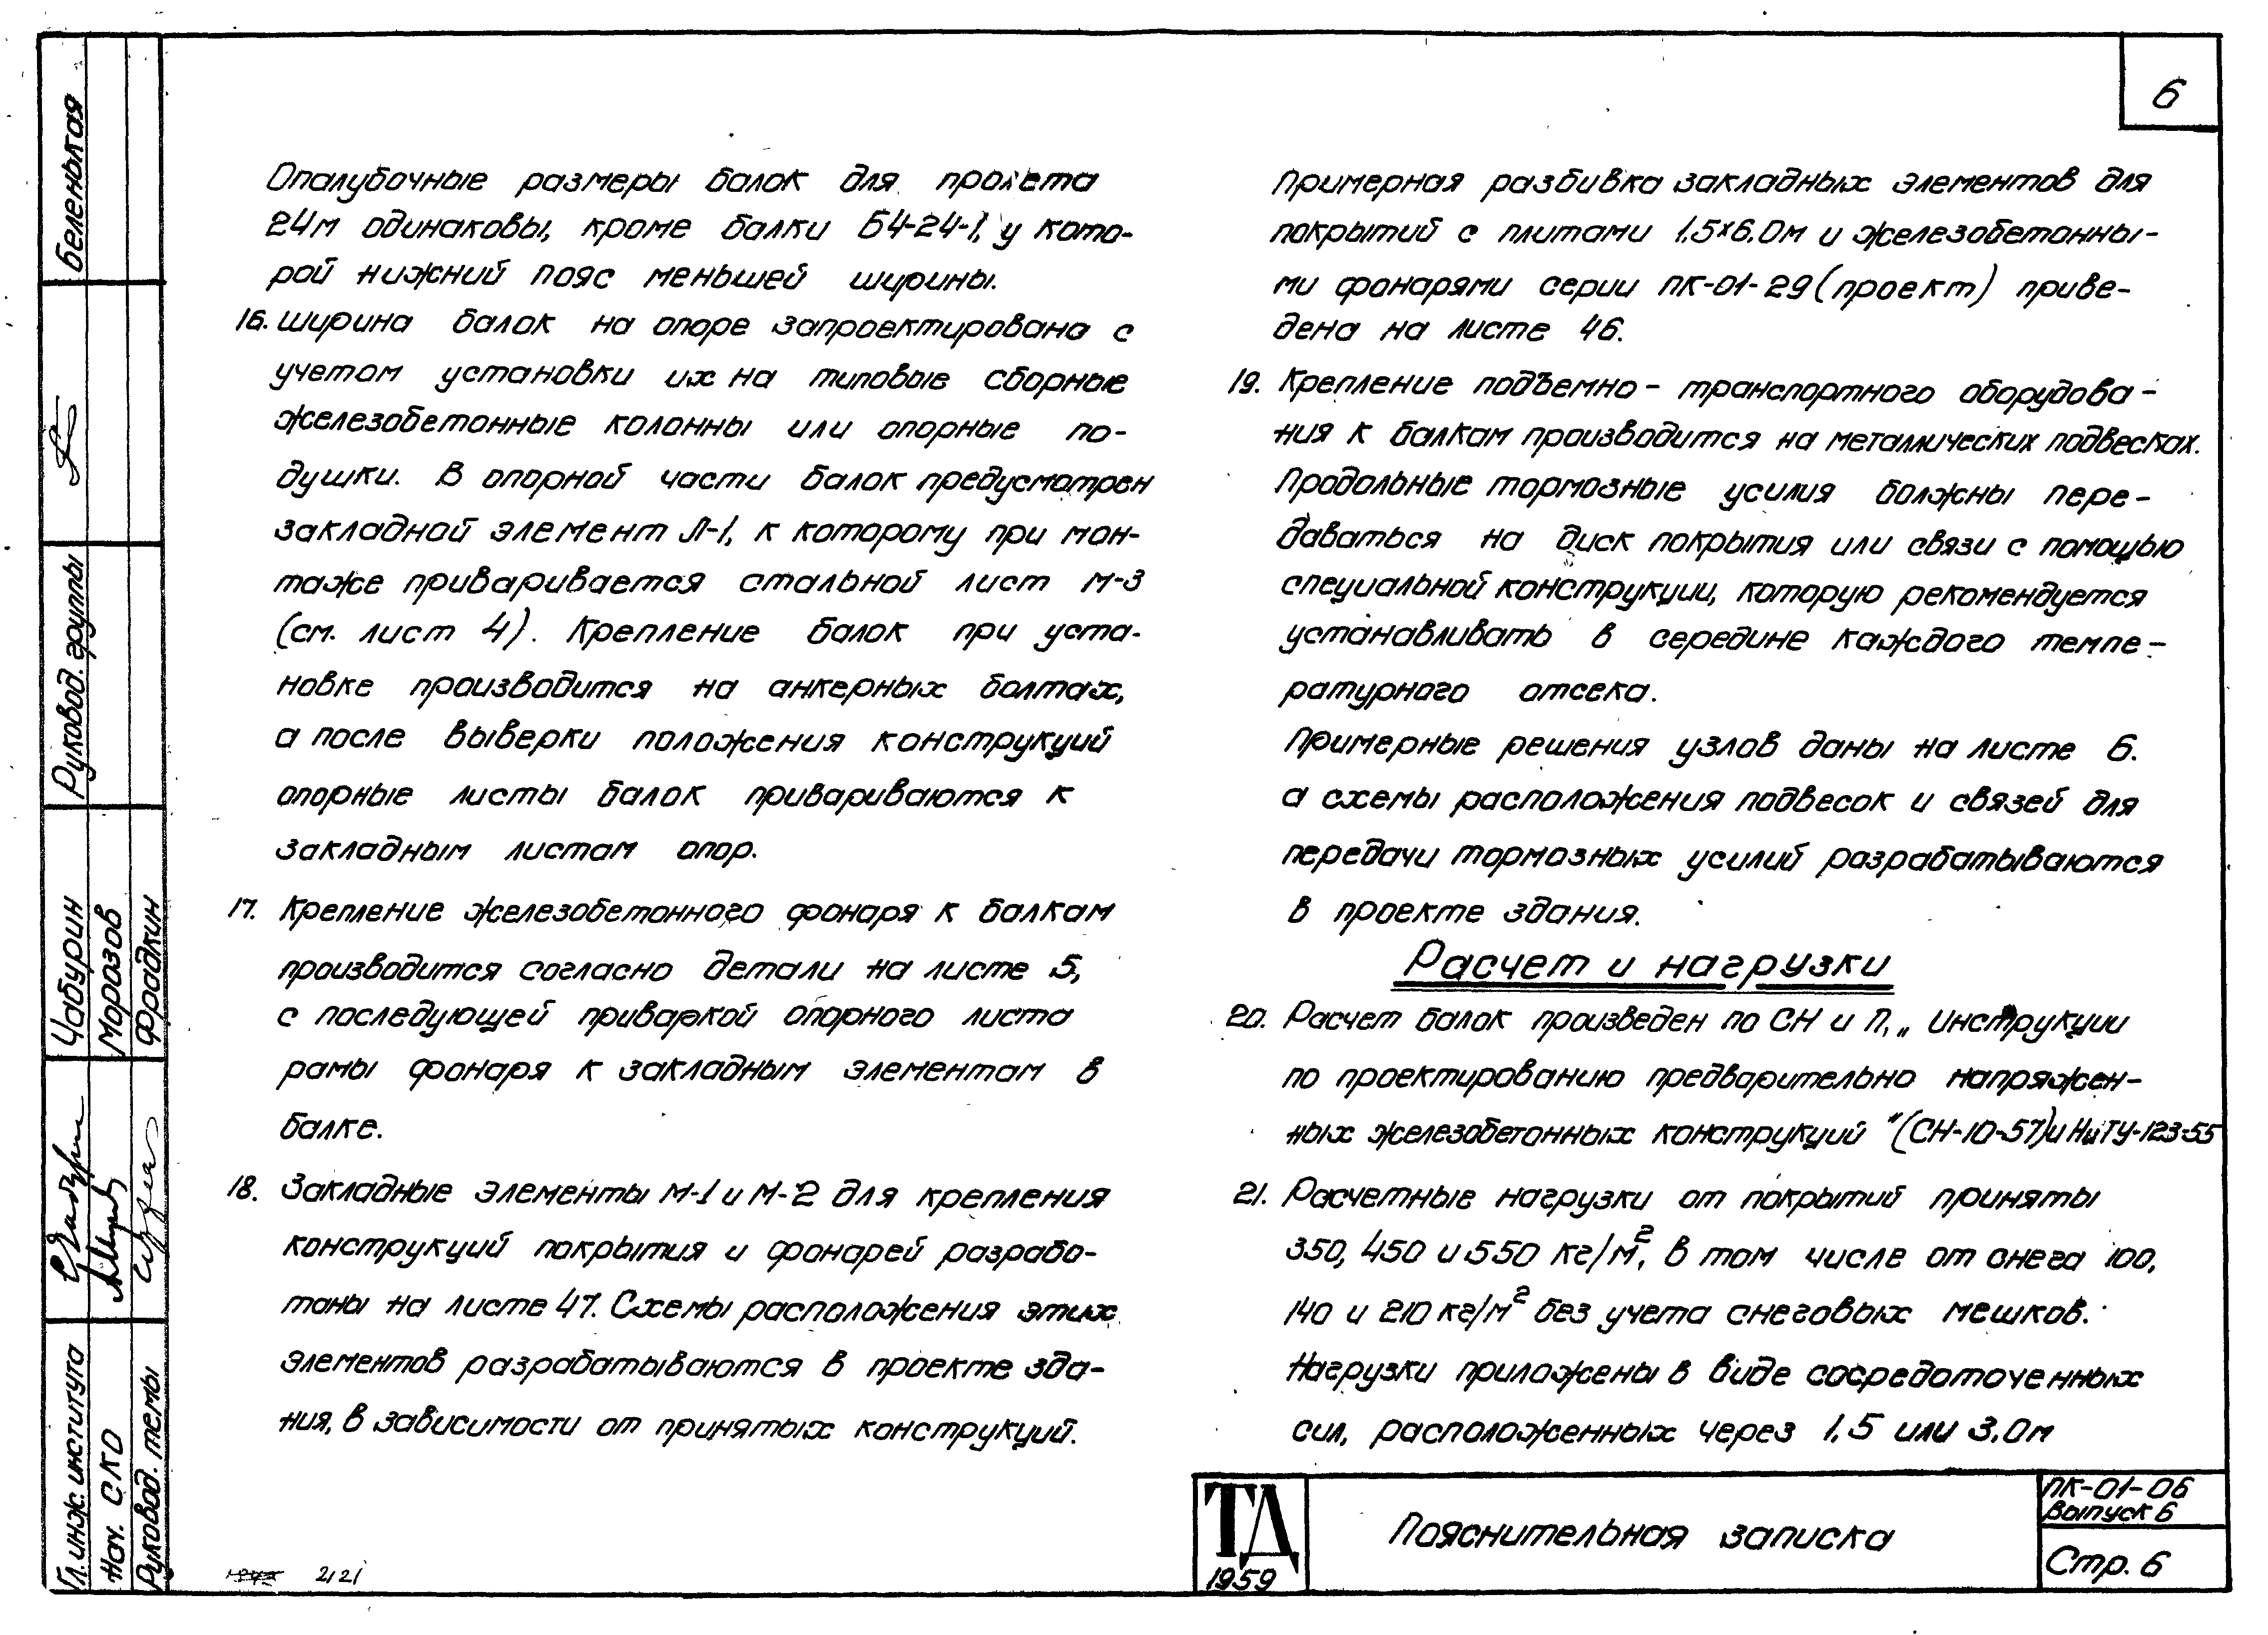 6
Опалубочные размеры балок для пролета
24м одинаковы, кроме балки Б4-24-1, у кото-
рой нижний пояс меньшей ширины.
16. Ширина балок на опоре запроектирована с
учетом установки их на типовые сборные
железобетонные колонны или опорные по-
душки. В опорной части балок предусмотрен
закладной элемент Л-1, к которому при мон-
таже приваривается стальной лист М-3
(см. лист 4). Крепление балок при уста-
новке производится на анкерных болтах,
а после выверки положения конструкций
опорные листы балок привариваются к
закладным листам опор.
17. Крепление железобетонного фонаря к балкам
производится согласно детали на листе 5,
с последующей приваркой опорного листа
рамы фонаря к закладным элементам в
балке.
18. Закладные элементы М-1 и М-2 для крепления
конструкций покрытия и фонарей разрабо-
таны на листе 47. Схемы расположения этих
элементов разрабатываются в проекте зда-
ния, в зависимости от принятых конструкций.
Примерная разбивка закладных элементов для
покрытий с плитами 1,5×6,0м и железобетонны-
ми фонарями серии ПК-01-29 (проект) приве-
дена на листе 46.
19. Крепление подъемно-транспортного оборудова-
ния к балкам производится на металлических подвесках.
Продольные тормозные усилия болжны пере-
даваться на диск покрытия или связи с помощью
специальной конструкции, которую рекомендуется
устанавливать в середине каждого темпе-
ратурного отсека.
Примерные решения узлов даны на листе 6.
а схемы расположения подвесок и связей для
передачи тормозных усилий разрабатываются
в проекте здания.
Расчет и нагрузки
20. Расчет балок произведен по СН и П, „Инструкции
по проектированию предварительно напряжен-
ных железобетонных конструкций" (СН-10-57) и НиТУ-123-55
21. Расчетные нагрузки от покрытий приняты
350, 450 и 550 кг/м², в том числе от снега 100,
140 и 210 кг/м² без учета снеговых мешков.
Нагрузки приложены в виде сосредоточенных
сил, расположенных через 1,5 или 3,0м
ТД
1959
Пояснительная записка
ПК-01-06
выпуск 6
Стр. 6
2121
Беленькая
Руковод. группы
Чабурин
Морозов
Фрадкин
Гл. инж. института
Нач. СКО
Руковод. темы